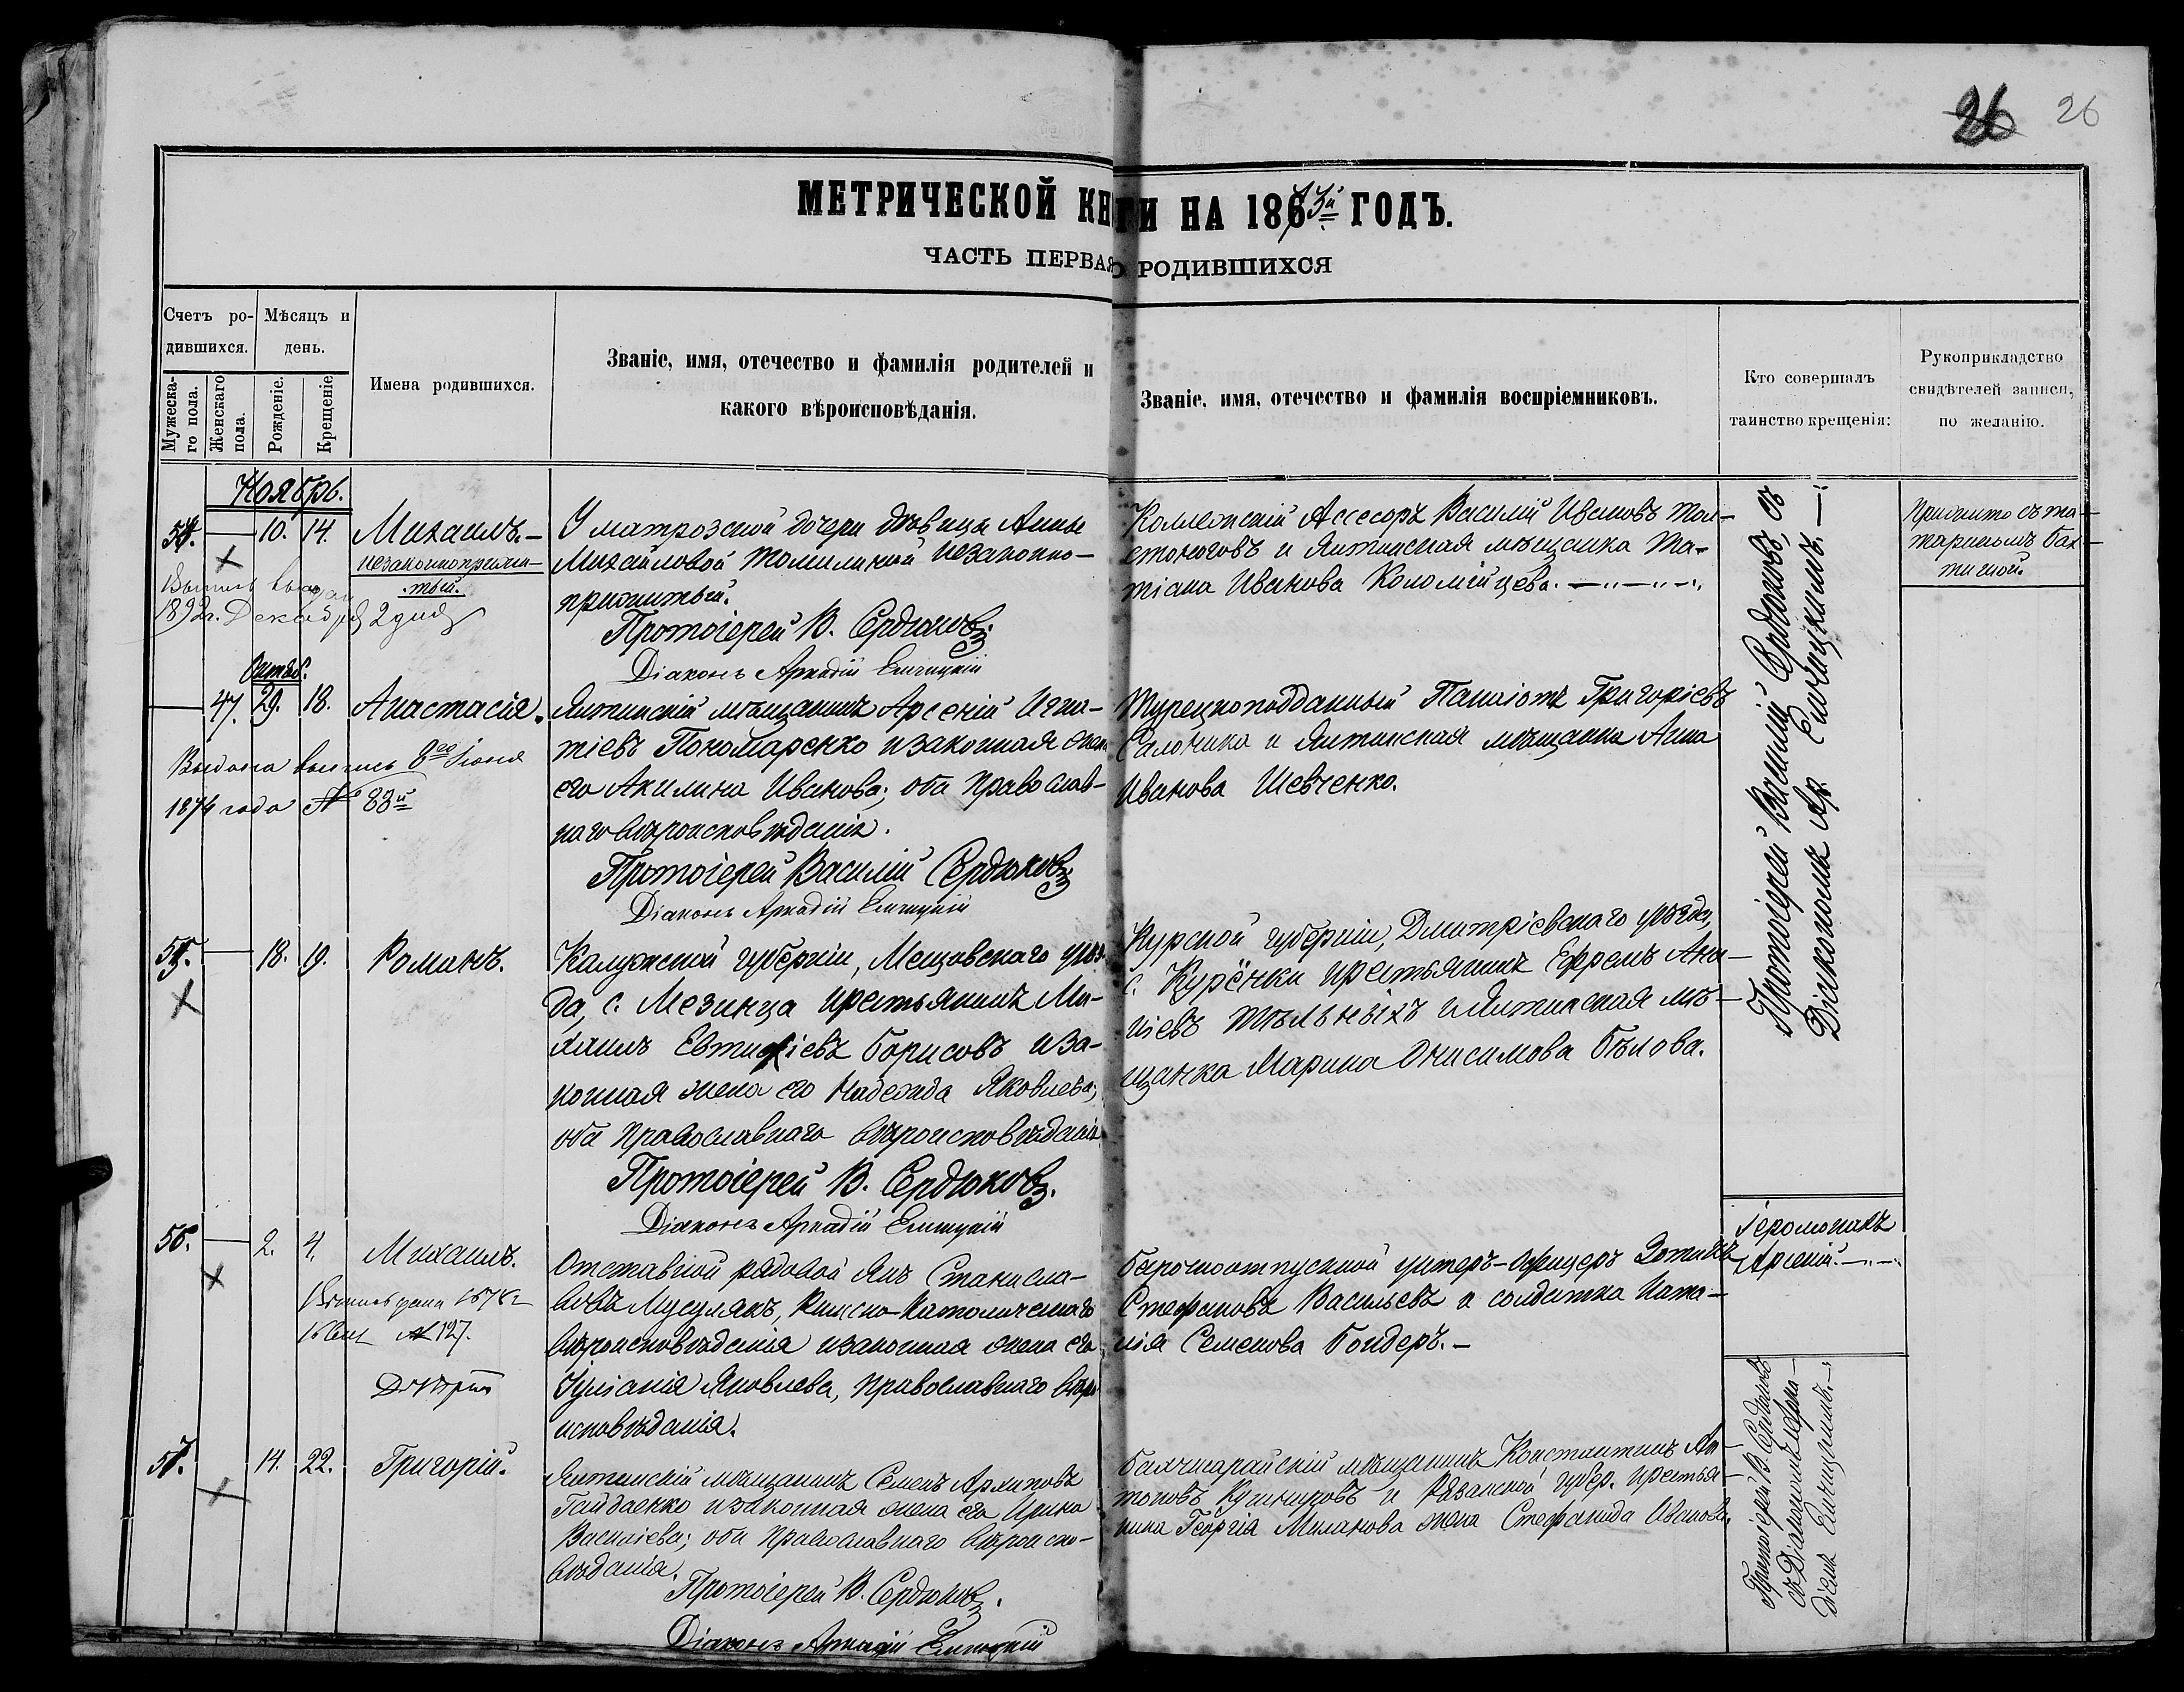 26 26
МЕТРИЧЕСКОЙ КНИГИ НА 1873й ГОДЪ.
ЧАСТЬ ПЕРВАЯ О РОДИВШИХСЯ
Счетъ ро-
дившихся.
Мужеска-
го пола.
Женскаго
пола.
Мѣсяцъ и
день.
Рожденіе.
Крещеніе
Имена родившихся.
Званіе, имя, отечество и фамилія родителей и
какого вѣроисповѣданія.
Званіе, имя, отечество и фамилія воспріемниковъ.
Кто совершалъ
таинство крещенія:
Рукоприкладство
свидѣтелей записи,
по желанію.
Ноябрь.
54. — 10. 14. Михаилъ. —
незаконноприжи-
тый.
1892г. Декабря 2 дня
У матрозской дочери дѣвицы Анны
Михайловой Томилиной незаконно-
прижитый.
Протоіерей В. Сердюковъ.
Діаконъ Аркадій
Коллежскій Ассесоръ Василій Ивановъ Тол-
стоноговъ и Ялтинская мѣщанка Та-
тіана Иванова Коломійцева.
Прижито съ та-
тариномъ
Октяб.
— 47. 29. 18. Анастасія.
Выдана выпись 8го Іюня
1874 года № 83й
Ялтинскій мѣщанинъ Арсеній Игна-
тіевъ Пономаренко и законная жена
его Акилина Иванова; оба православ-
наго вѣроисповѣданія.
Протоіерей Василій Сердюковъ
Діаконъ Аркадій
Турецкоподданный Панаіотъ Григоріевъ
Салоника и Ялтинская мѣщанка Анна
Иванова Шевченко.
55. — 18. 19. Романъ.
Калужской губерніи, Мещовскаго уѣз-
да, с. Мезинца крестьянинъ Ми-
хаилъ Евтихіевъ Борисовъ и за-
конная жена его Надежда Яковлева;
оба православнаго вѣроисповѣданія.
Протоіерей В. Сердюковъ.
Діаконъ Аркадій
Курской губерніи, Дмитріевскаго уѣзда,
с. Курёнки крестьянинъ Ефремъ Ана-
ніевъ Тѣльныхъ и Ялтинская мѣ-
щанка Марина Онисимова Бѣлова.
Протоіерей Василій Сердюковъ, съ
Діакономъ Ар.
56. — 2. 4. Михаилъ.
№ 127.
Отставной рядовой Янъ Станисла-
вовъ Мусулякъ, Римско-Католическаго
вѣроисповѣданія и законная жена его
Іуліанія Яковлева, православнаго вѣро-
исповѣданія.
Безсрочноотпускной унтеръ-Офицеръ Зотикъ
Стефановъ Васильевъ и солдатка Ната-
лія Семенова Бондеръ. —
Іеромонахъ
Арсеній.
57. — 14. 22. Григорій.
Ялтинскій мѣщанинъ Семенъ Архиповъ
Гайдаенко и законная жена его Ирина
Васильева; оба православнаго вѣроиспо-
вѣданія.
Протоіерей В. Сердюковъ.
Діаконъ Аркадій
Бахчисарайскій мѣщанинъ Константинъ Ан-
тоновъ Кушнировъ и Рязанской губер. крестья-
нина Георгія Миланова жена Стефанида Иванова.
Протоіерей В. Сердюковъ
съ Діакономъ Арка-
діемъ